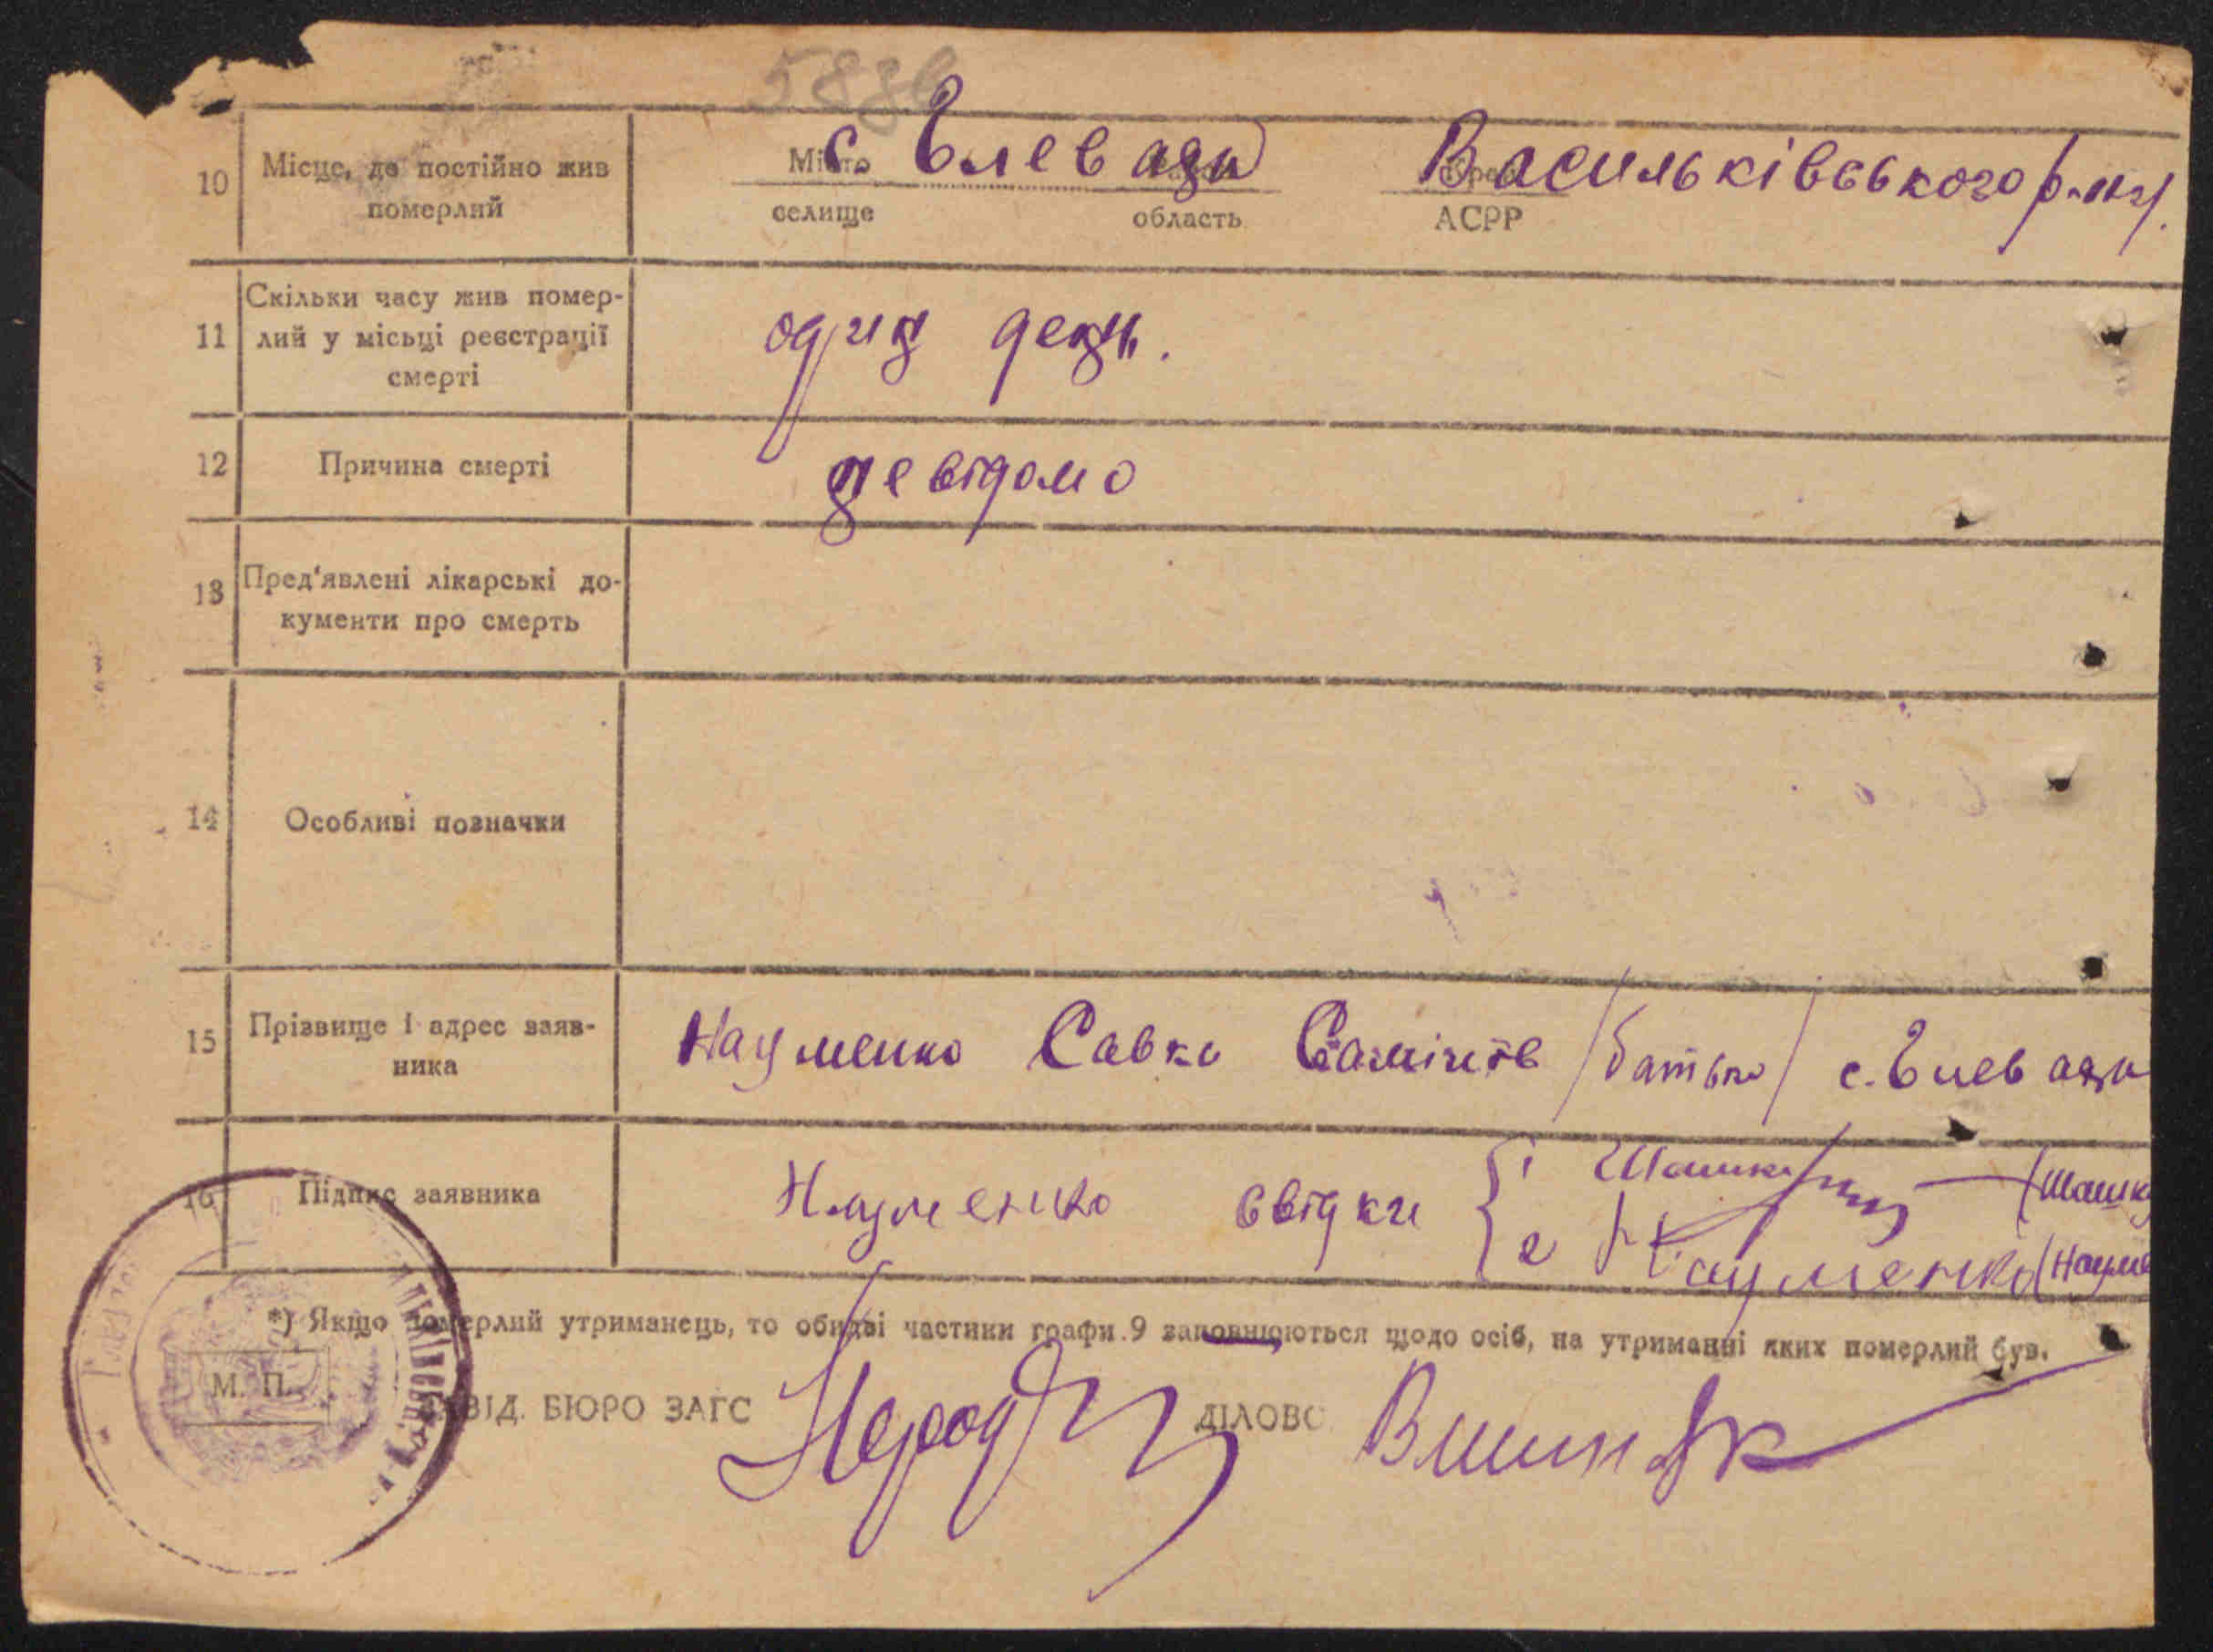 588
10 Місце, де постійно жив померлий
Місто с. Єлеваха Васильківського р-ну.
селище область АСРР
11 Скільки часу жив помер-
лий у місьці реєстрації
смерті
один день.
12 Причина смерті невідомо
13 Пред'явлені лікарські до-
кументи про смерть
14 Особливі позначки
15 Прізвище і адрес заяв-
ника
Науменко Савко /батько/ с.
16 Підпис заявника Науменко свідки { 1 Шашк
2 Науменко (Науме
*) Якщо померлий утриманець, то обидві частини графи 9 заповнюються щодо осіб, на утриманні яких померлий був.
М. П. ЗАВІД. БЮРО ЗАГС ДІЛОВОД